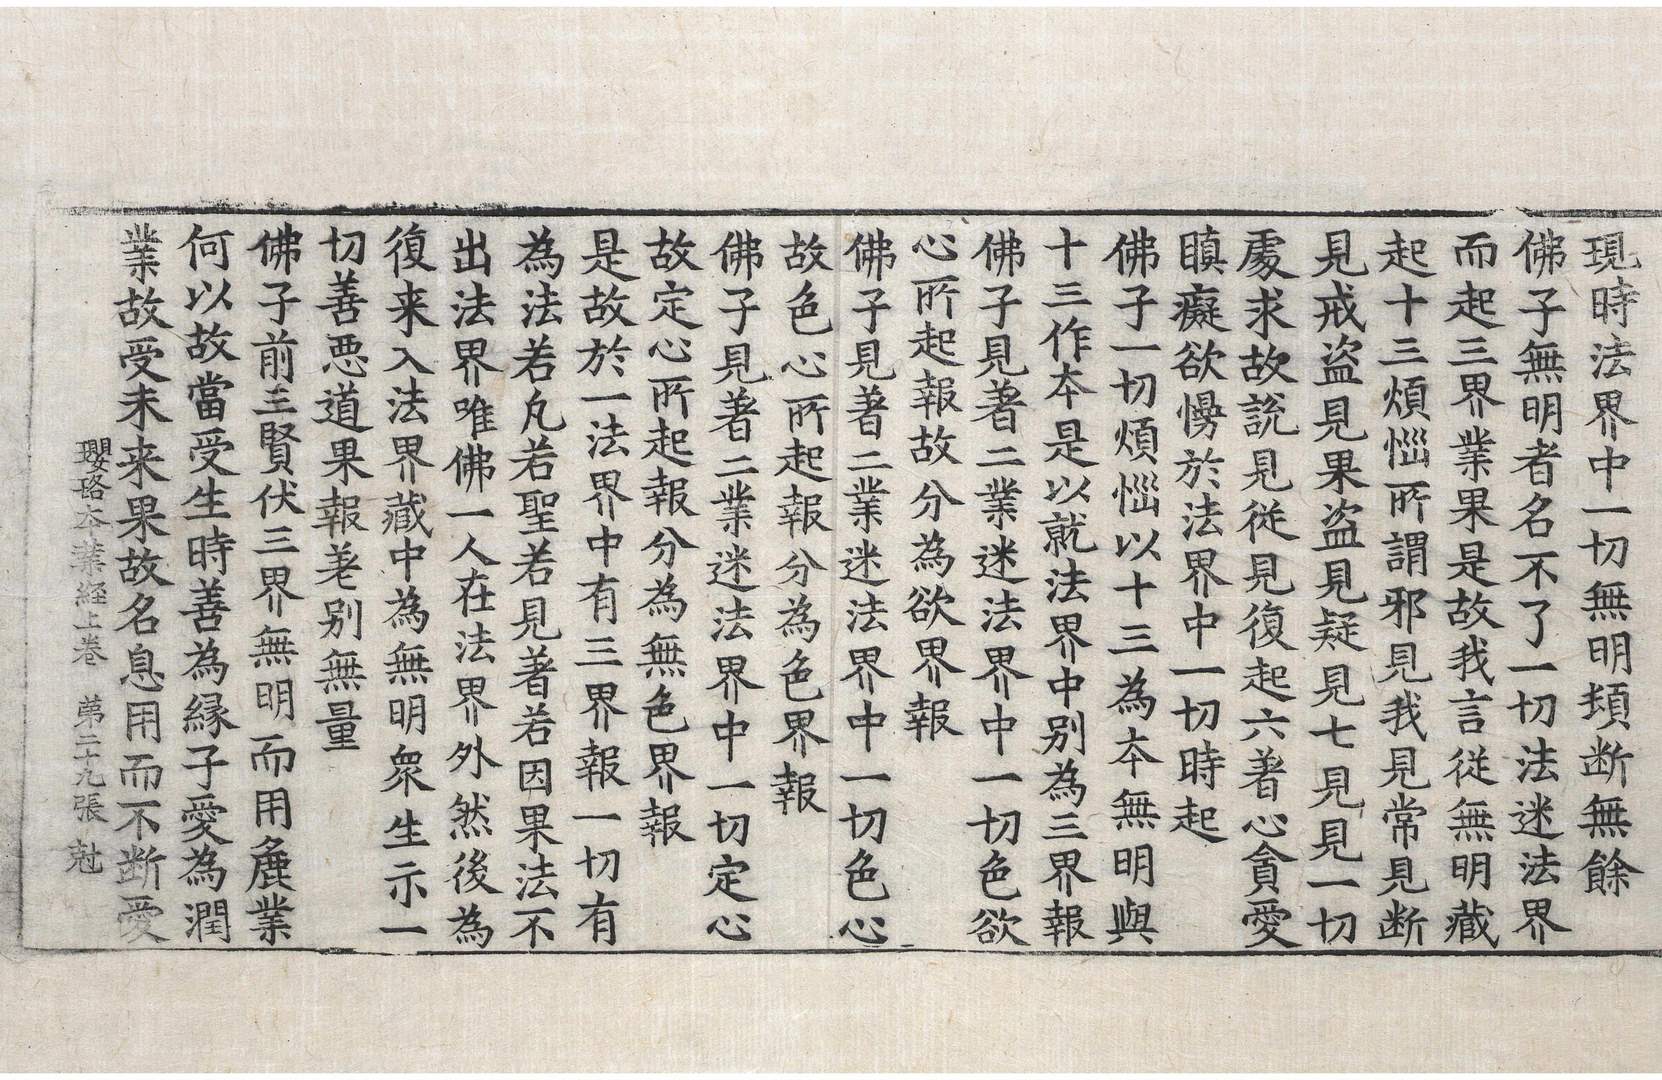 現時法界中一切無明頓断無餘
佛子無明者名不了一切法迷法界
而起三界業果是故我言從無明藏
起十三煩惱所謂邪見我見常見断
見戒盗見果盗見疑見七見見一切
處求故說見從見復起六著心貪愛
瞋癡欲慢於法界中一切時起
佛子一切煩惱以十三為本無明與
十三作本是以就法界中別為三界報
佛子見著二業迷法界中一切色欲
心所起報故分為欲界報
佛子見著二業迷法界中一切色心
故色心所起報分為色界報
佛子見著二業迷法界中一切定心
故定心所起報分為無色界報
是故於一法界中有三界報一切有
為法若凡若聖若見著若因果法不
出法界唯佛一人在法界外然後為
復来入法界藏中為無明衆生示一
切善悪道果報差別無量
佛子前三賢伏三界無明而用麁業
何以故當受生時善為縁子愛為潤
業故受未来果故名息用而不断愛
瓔珞本業経上卷 第二十九張 尅